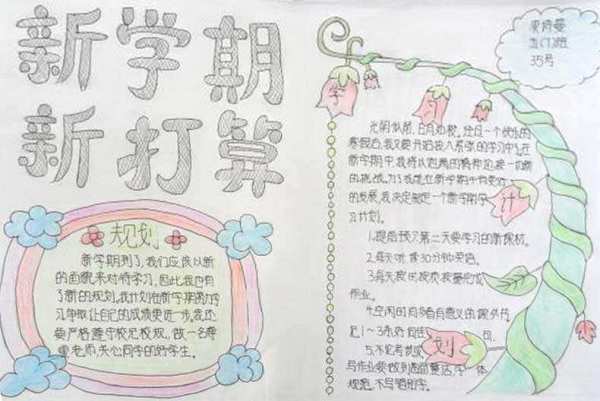 新学期
新打算
规划
新学期到了,我们应该以新
的面貌来对待学习,因此我也有
了新的规划。我计划在新学期里努力学
习,争取让自己的成绩更进一步,我还
要严格遵守校纪校规,做一名尊
重老师,关心同学的好学生。
35号
学习计划
光阴似箭,日月如梭。经过一个快乐的
寒假后,我又要开始投入紧张的学习中了,在
新学期中,我将以饱满的精神迎接一切新
的挑战。为了我能在新学期中有更好
的发展,我决定制定一个新学期学
习计划。
1.提前预习第二天要学习的新课文。
2.每天听录30分钟英语。
3.每天按时按质按量完成
作业。
4.空闲时间多看有意义的课外书
记1~3条好词佳句。
5.不论考试
写作业都做到
规范,不写错别字。